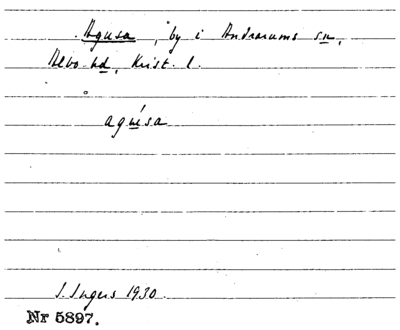 Agusa, by i Andrarums sn,
Albo hd, Krist. l.
agúsa
I. Ingers 1930.
Nr 5897.